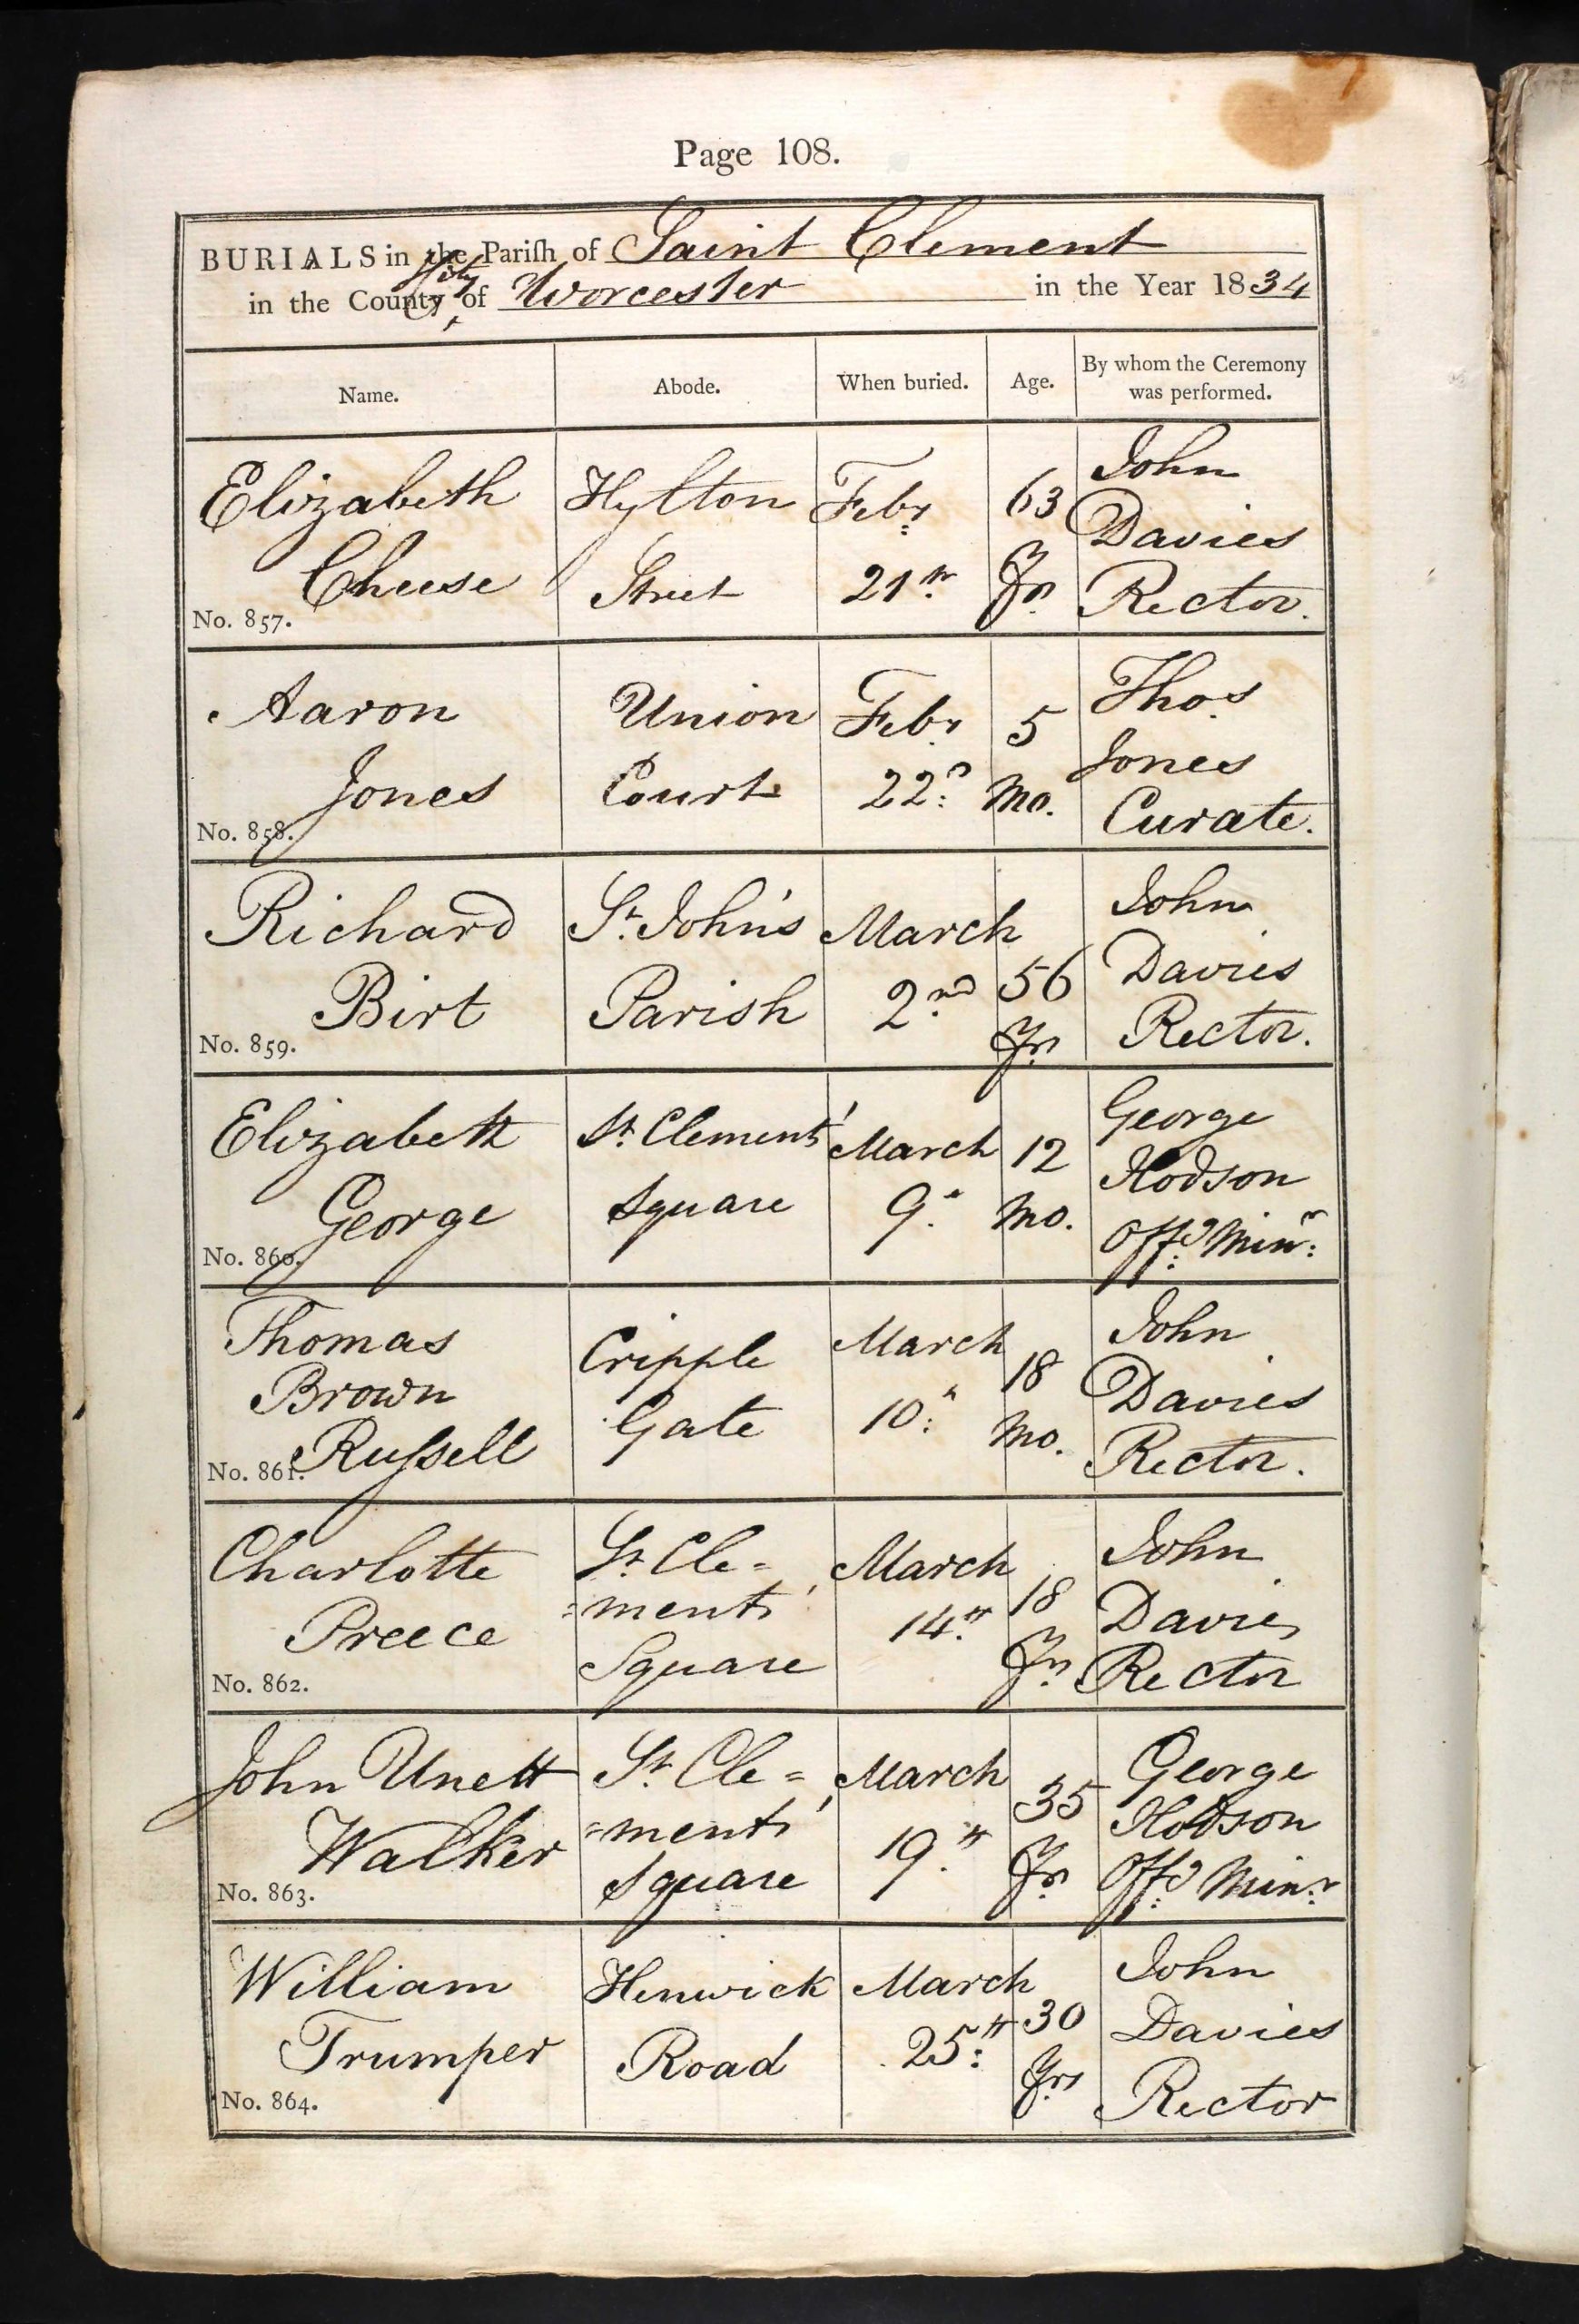 Page 108.
BURIALS in the Pariſh of Saint Clement
City
in the County of Worcester in the Year 1834
Name. Abode. When buried. Age. By whom the Ceremony was performed.
Elizabeth Cheese Hylton Street Febr 21st 63 Yrs John Davies Rector.
No. 857.
Aaron Jones Union Court Febr 22d 5 Mo. Thos Jones Curate.
No. 858.
Richard Birt St. John's Parish March 2nd 56 Yrs John Davies Rector.
No. 859.
Elizabeth George St. Clements' Square March 9th 12 Mo. George Hodson Offg Minr
No. 860.
Thomas Brown Ruſsell Cripple Gate March 10th 18 Mo. John Davies Rector.
No. 861.
Charlotte Preece St. Cle= =ments' Square March 14th 18 Yrs John Davies Rector
No. 862.
John Unett Walker St. Cle= =ments' Square March 19th 35 Yrs George Hodson Offg Minr
No. 863.
William Trumper Henwick Road March 25th 30 Yrs John Davies Rector
No. 864.